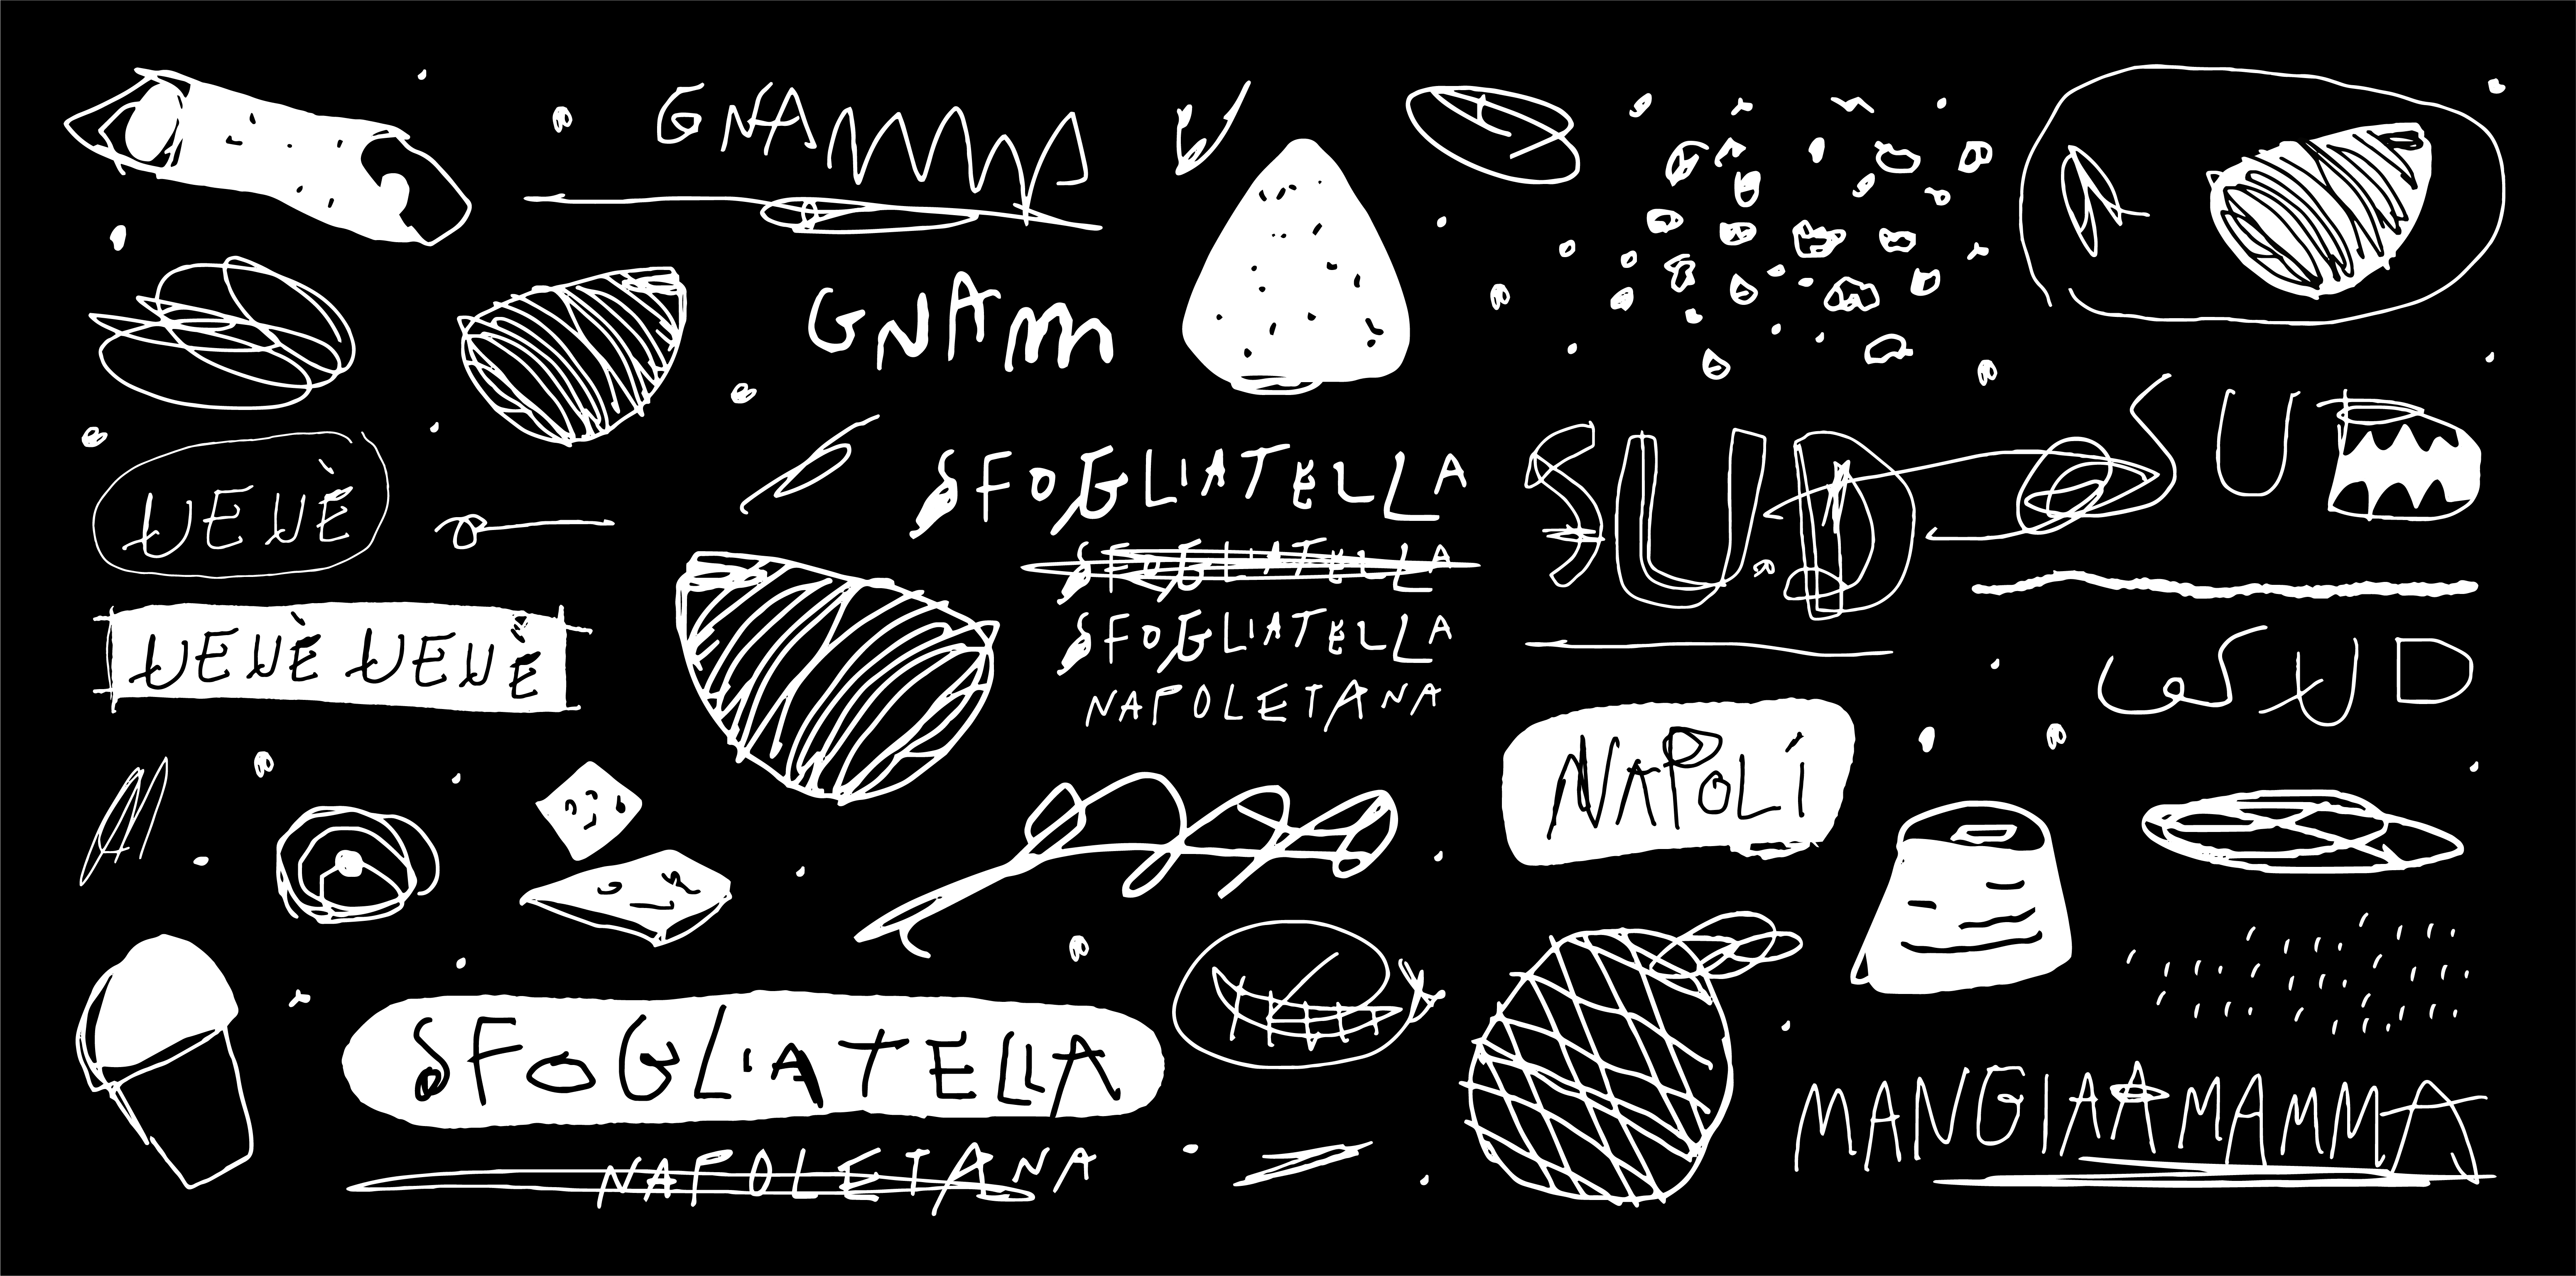 GNAMMM
GNAMM
UEUÈ
SFOGLIATELLA
SFOGLIATELLA
SFOGLIATELLA
NAPOLETANA
SUD
SUD
UEUÈ UEUÈ
SUD
NAPOLI
SFOGLIATELLA
NAPOLETANA
MANGIAAMAMMA